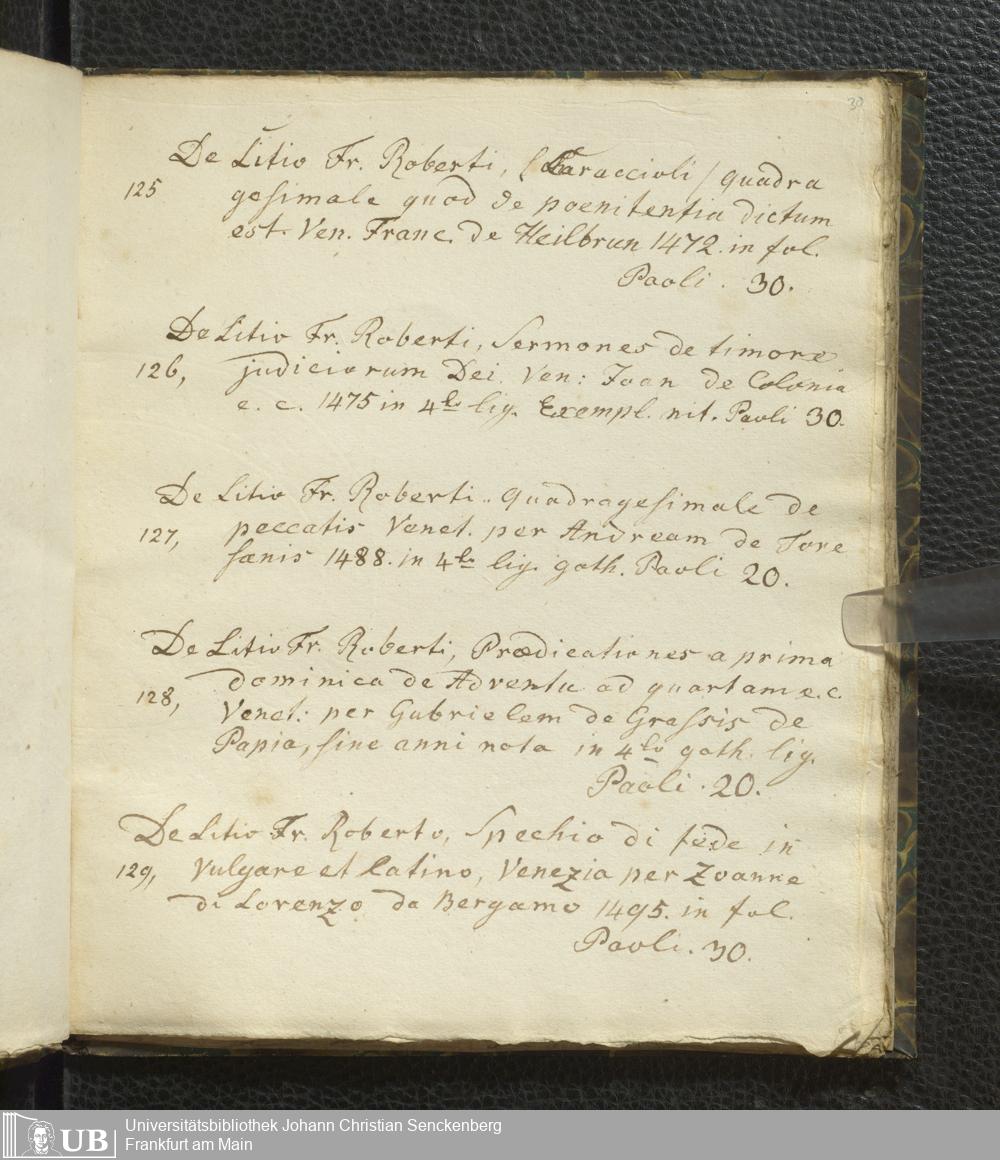 30
De Litio Fr. Roberti, (Caraccioli / quadra
125 gesimale quod de poenitentia dictum
est. Ven. Franc. de Heilbrun 1472. in fol.
Paoli. 30.
De Litio Fr. Roberti, Sermones de timore
126, judiciorum Dei. Ven: Joan de Colonia
e. c. 1475 in 4to lig. Exempl. nit. Paoli 30.
De Litio Fr. Roberti.. quadragesimale de
127, peccatis Venet. per Andream de Tore
sanis 1488. in 4to lig. goth. Paoli 20.
De Litio Fr. Roberti, Prædicationes a prima
128, dominica de Adventu ad quartam e. c.
Venet: per Gabrielem de Grassis de
Papia, sine anni nota in 4to goth. lig.
Paoli. 20.
De Litio Fr. Roberto, Spechio di fede in
129, Vulgare et Latino, Venezia per Zoanne
di Lorenzo da Bergamo 1495. in fol.
Paoli. 30.
UB
Universitätsbibliothek Johann Christian Senckenberg
Frankfurt am Main